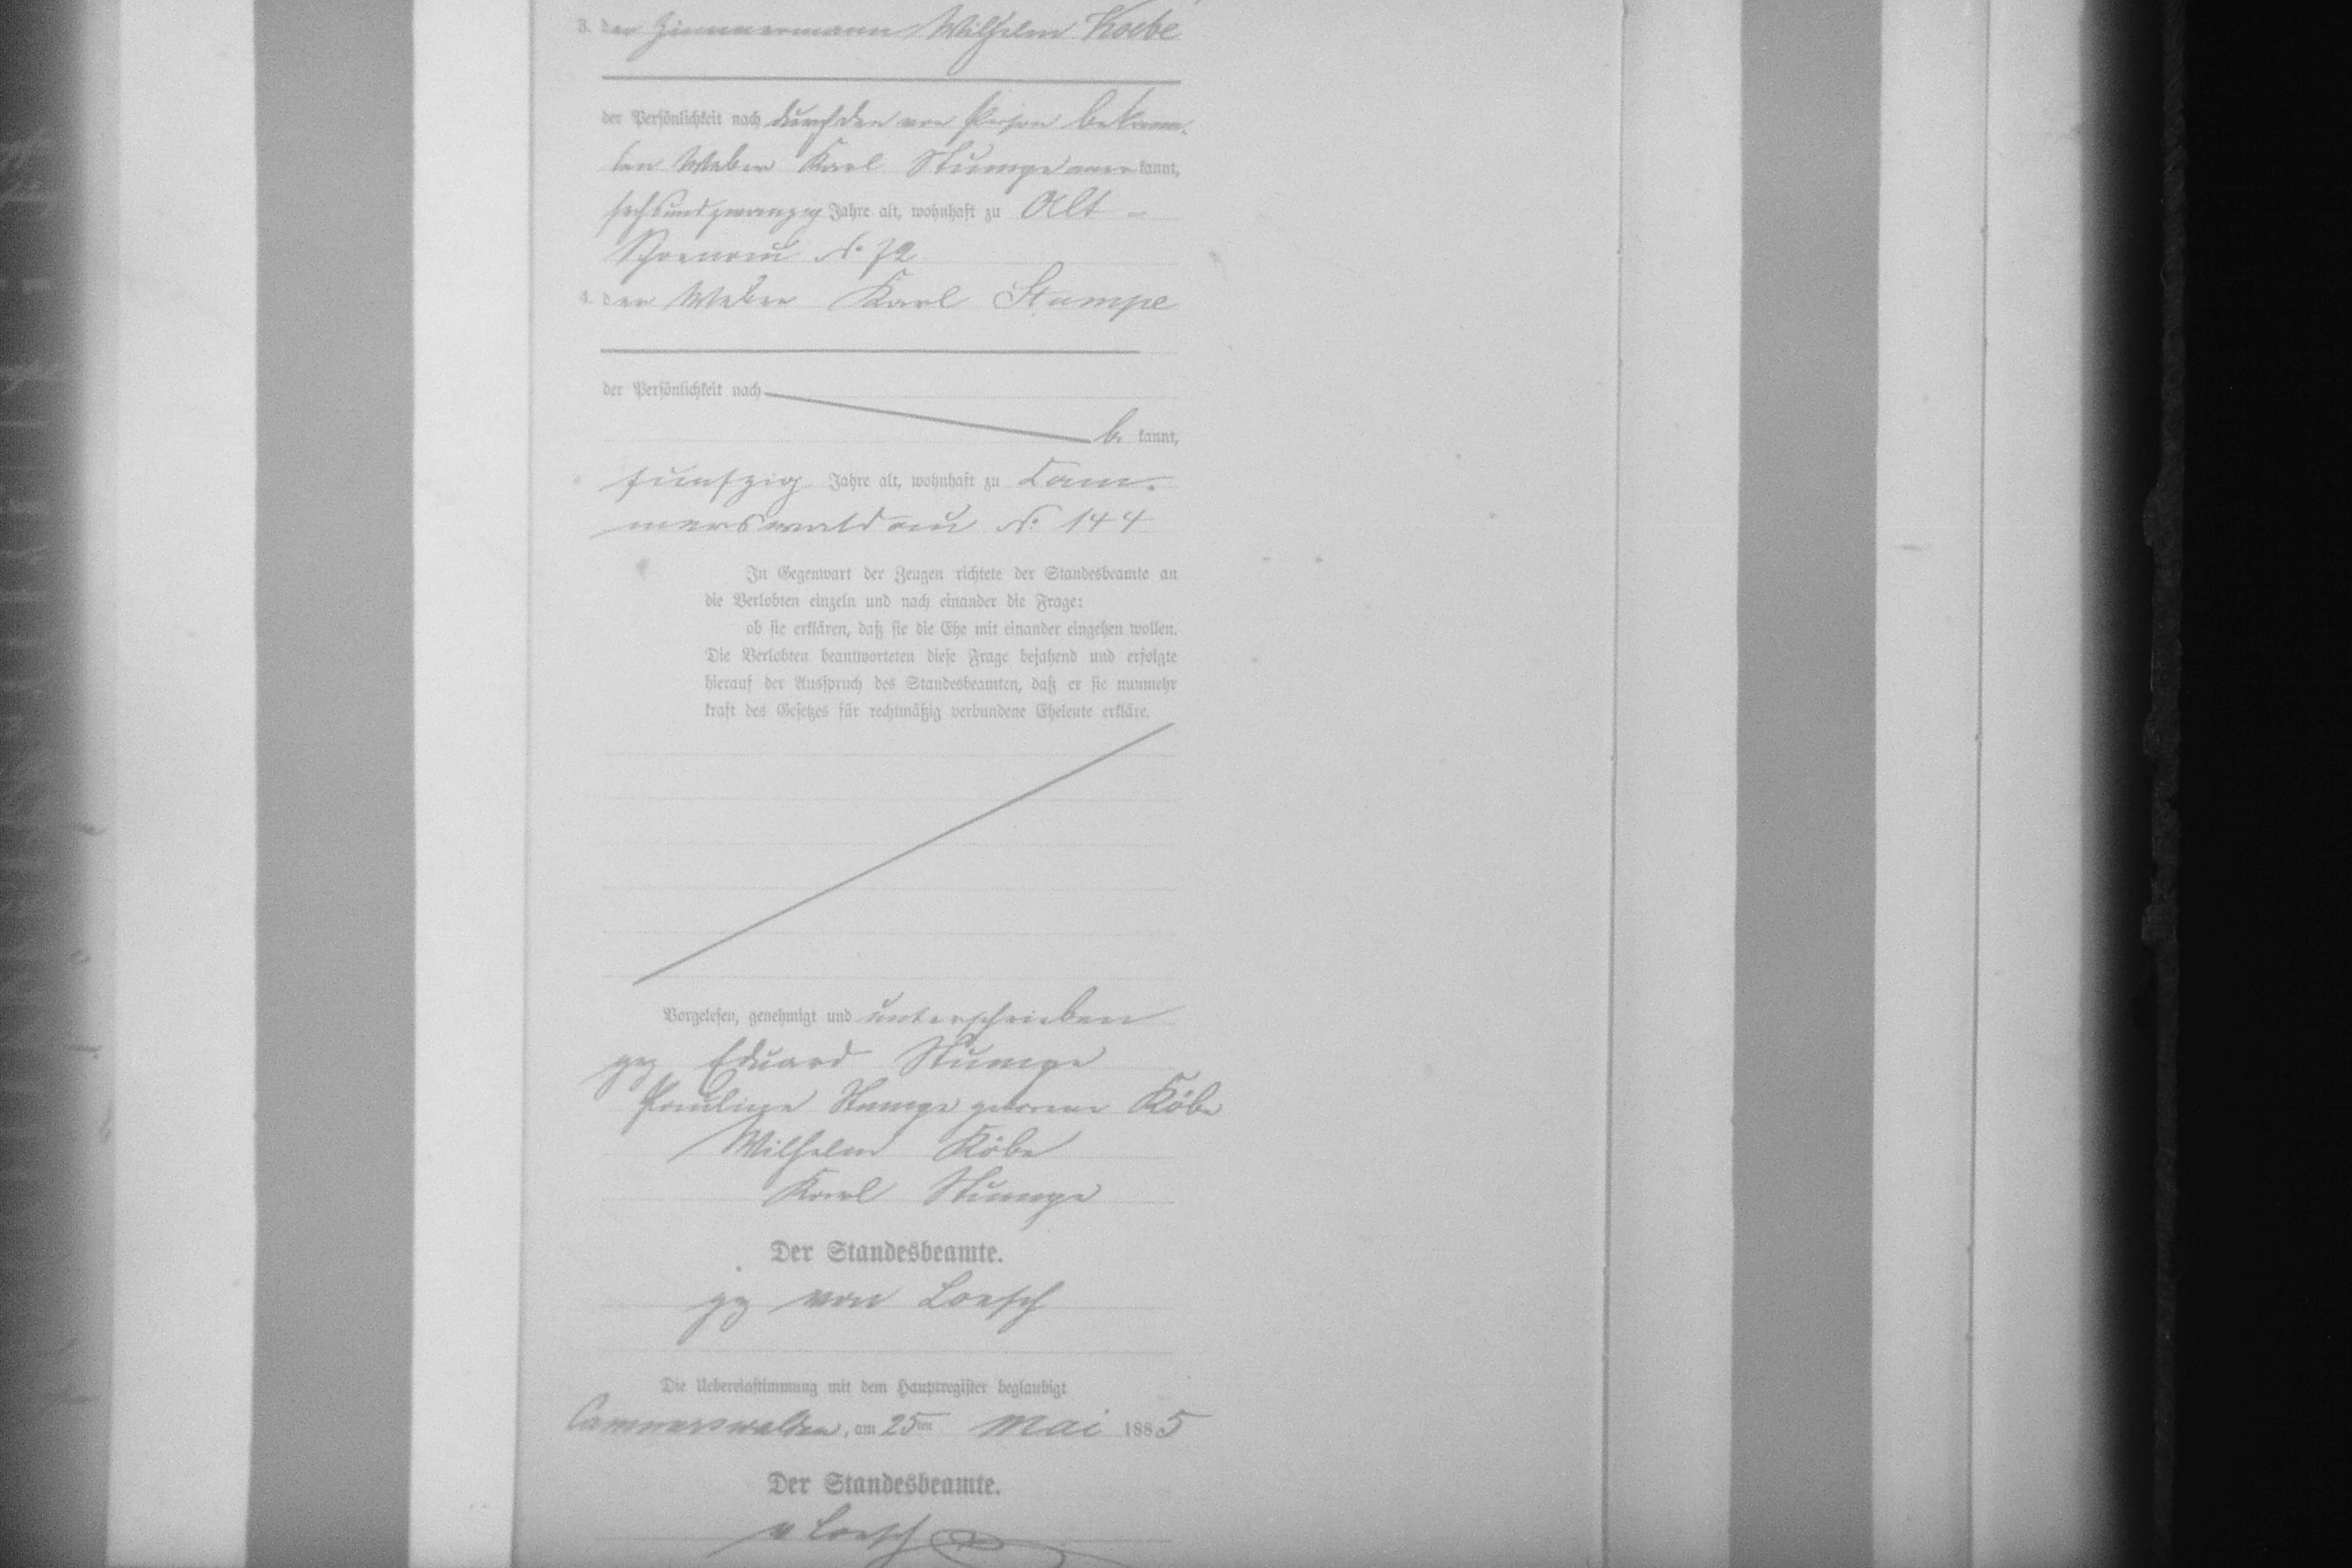 3. der Zimmermann Wilhelm Koebe
der Persönlichkeit nach durch den von Person bekann-
ten Weber Karl Stumpe anerkannt,
sechsundzwanzig Jahre alt, wohnhaft zu Alt-
Schoenau No 72
4. der Weber Karl Stumpe
der Persönlichkeit nach
be kannt,
funfzig Jahre alt, wohnhaft zu Cam-
merswaldau No 144
In Gegenwart der Zeugen richtete der Standesbeamte an
die Verlobten einzeln und nach einander die Frage:
ob sie erklären, daß sie die Ehe mit einander eingehen wollen.
Die Verlobten beantworteten diese Frage bejahend und erfolgte
hierauf der Ausspruch des Standesbeamten, daß er sie nunmehr
kraft des Gesetzes für rechtmäßig verbundene Eheleute erkläre.
Vorgelesen, genehmigt und unterschrieben
gez Eduard Stumpe
Pauline Stumpe geborene Köbe
Wilhelm Köbe
Karl Stumpe
Der Standesbeamte.
gez von Loesch
Die Uebereinstimmung mit dem Hauptregister beglaubigt
Cammerswaldau, am 25ten Mai 1885
Der Standesbeamte.
v Loesch